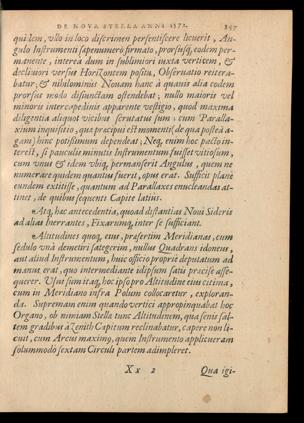 DE NOVA STELLA ANNI 1572. 347
qui lem, vllo in loco discrimen persentiscere licuerit, An-
gulo Instrumenti sæpenumerò firmato, prorsusq, eodem per-
manente, interea dum in sublimiori iuxta verticem, &
decliuiori versus Horizontem positu, Observatio reitera-
batur; & nihilominus Novam hanc à quavis alia eodem
prorsus modo disiunctam ostendebat; nullo maioris vel
minoris intercapedinis apparente vestigio, quod maxima
diligentia aliquot vicibus scrutatus sum: cum Paralla-
xium inquisitio, quæ præcipui est momenti (de qua posteà a-
gam) hinc potissimum dependeat; Neq, enim hoc pacto in-
terest, si pauculis minutis Instrumentum fuisset vitiosum,
cum vnus & idem vbiq, permanserit Angulus, quem ne
numerare quidem quantus fuerit, opus erat. Sufficit planè
eundem extitisse, quantum ad Parallaxes enucleandas at-
tinet, de quibus sequenti Capite latius.
Atq, hæc antecedentia, quoad distantias Novi Sideris
ad alias inerrantes, Fixarumq, inter se sufficiant.
Altitudines quoq, eius, præsertim Meridianas, cum
sedulo vnà demetiri satagerim, nullus Quadrans idoneus,
aut aliud Instrumentum, huic officio propriè deputatum ad
manus erat, quo intermediante id ipsum satis præcisè asse-
querer. Usus sum itaq, hoc ipso pro Altitudine eius citima,
cum in Meridiano infra Polum collocaretur, exploran-
da. Supremam enim quando vertici appropinquabat hoc
Organo, ob nimiam Stellæ tunc Altitudinem, qua senis sal-
tem gradibus à Zenith Capitum reclinabatur, capere non li-
cuit, cum Arcus maximo, quem Instrumento applicueram
solummodo sextam Circuli partem adimpleret.
Xx 2 Qua igi-